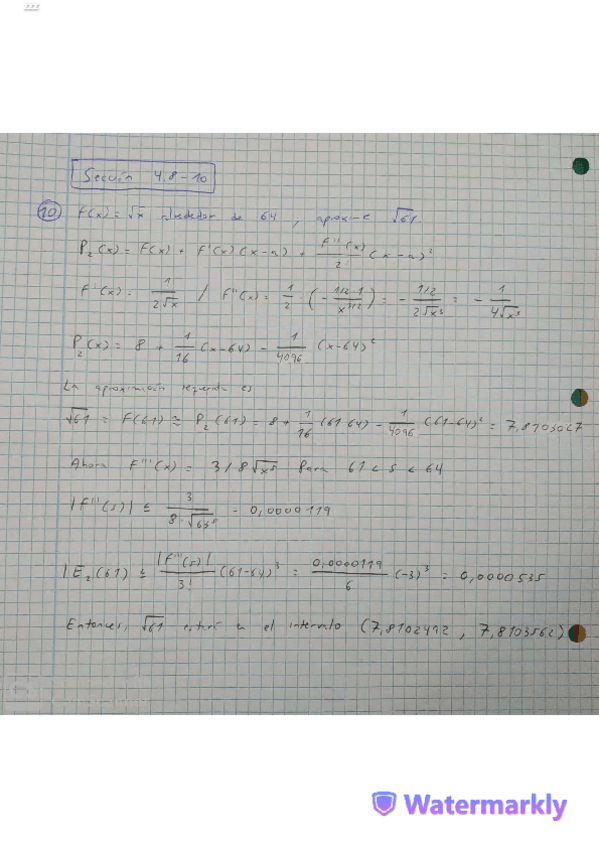 Sección 4.8-10
10) f(x) = √x alrededor de 64, aproxime √61.
P₂(x) = F(x) + F'(x)(x-a) + F''(x)/2! (x-a)²
F'(x) = 1/(2√x) / F''(x) = 1/2 · (- 1/2·1/x^(3/2)) = - (1/2)/(2√x³) = - 1/(4√x³)
P₂(x) = 8 + 1/16 (x-64) - 1/4096 (x-64)²
La aproximación requerida es
√61 = F(61) ≅ P₂(61) = 8 + 1/16 (61-64) - 1/4096 (61-64)² = 7,8103027
Ahora F'''(x) = 3/8√x⁵ Para 61 < s < 64
|F'''(s)| ≤ 3/(8·√61⁵) = 0,0000119
|E₂(61) ≤ |F'''(s)|/3! (61-64)³ = 0,0000119/6 (-3)³ = 0,0000535
Entonces, √61 estará en el intervalo (7,8102492, 7,8103562)
Watermarkly